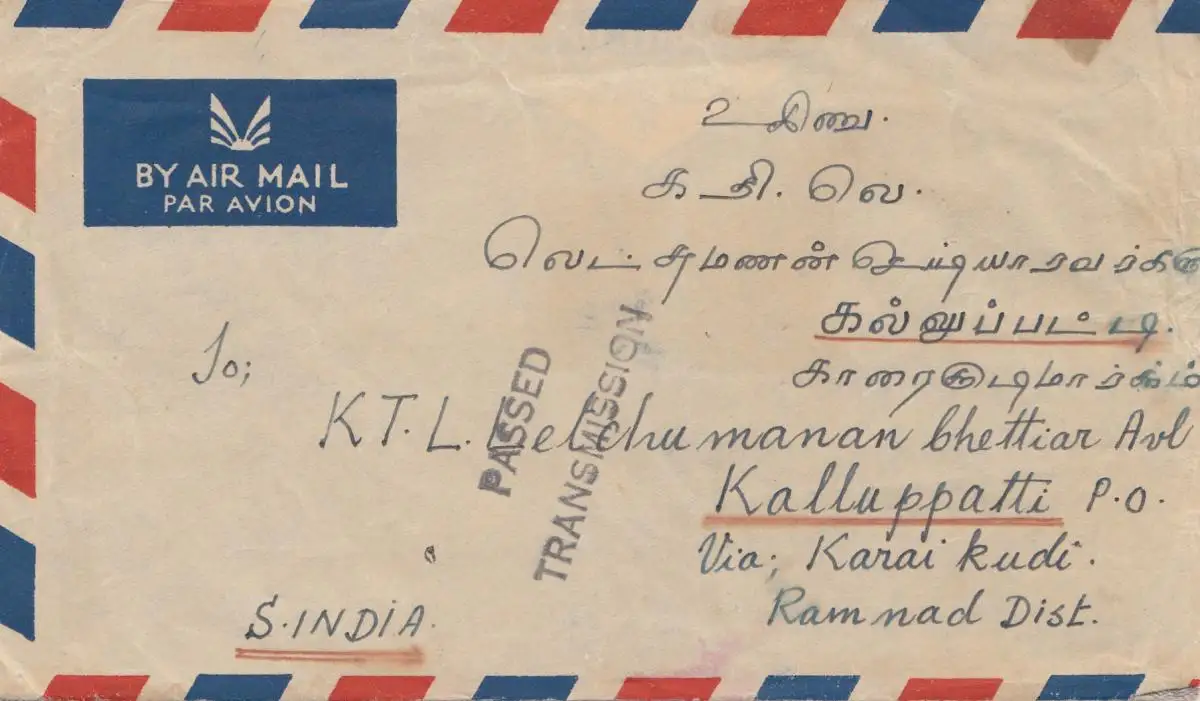 BY AIR MAIL
PAR AVION
க தி. லெ.
லெட்சுமணன் செட்டியாரவர்கள்
கல்லுப்பட்டி.
காரைகுடிமார்கம்
To;
K T. L. Letchumanan Chettiar Avl
Kalluppatti P.O.
Via; Karaikudi.
Ramnad Dist.
S. INDIA.
PASSED
TRANSMISSION